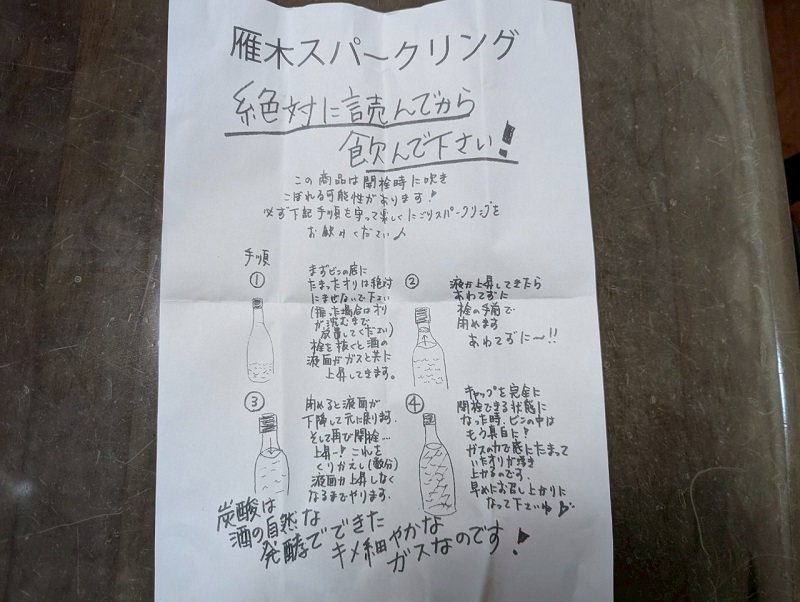 雁木スパークリング
絶対に読んでから
飲んで下さい!
この商品は開栓時に吹き
こぼれる可能性があります!
必ず下記手順を守って楽しくにごりスパークリングを
お飲みください♪
手順
①
まずビンの底に
たまったオリは絶対
にまぜないで下さい
(振った場合はオリ
が沈むまで
放置してください)
栓を抜くと酒の
液面がガスと共に
上昇してきます。
②
液が上昇してきたら
あわてずに
栓の手前で
閉めます
あわてずに〜!!
③
閉めると液面が
下降して元に戻ります。
そして再び開栓…
上昇ー!これを
くりかえし(数分)
液面が上昇しなく
なるまでやります。
④
キャップを完全に
開栓できる状態に
なった時、ビンの中は
もう真白に!
ガスの力で底にたまって
いたオリが浮き
上がるのです。
早めにお召し上がりに
なって下さいね
炭酸は
酒の自然な
発酵でできた
キメ細やかな
ガスなのです!